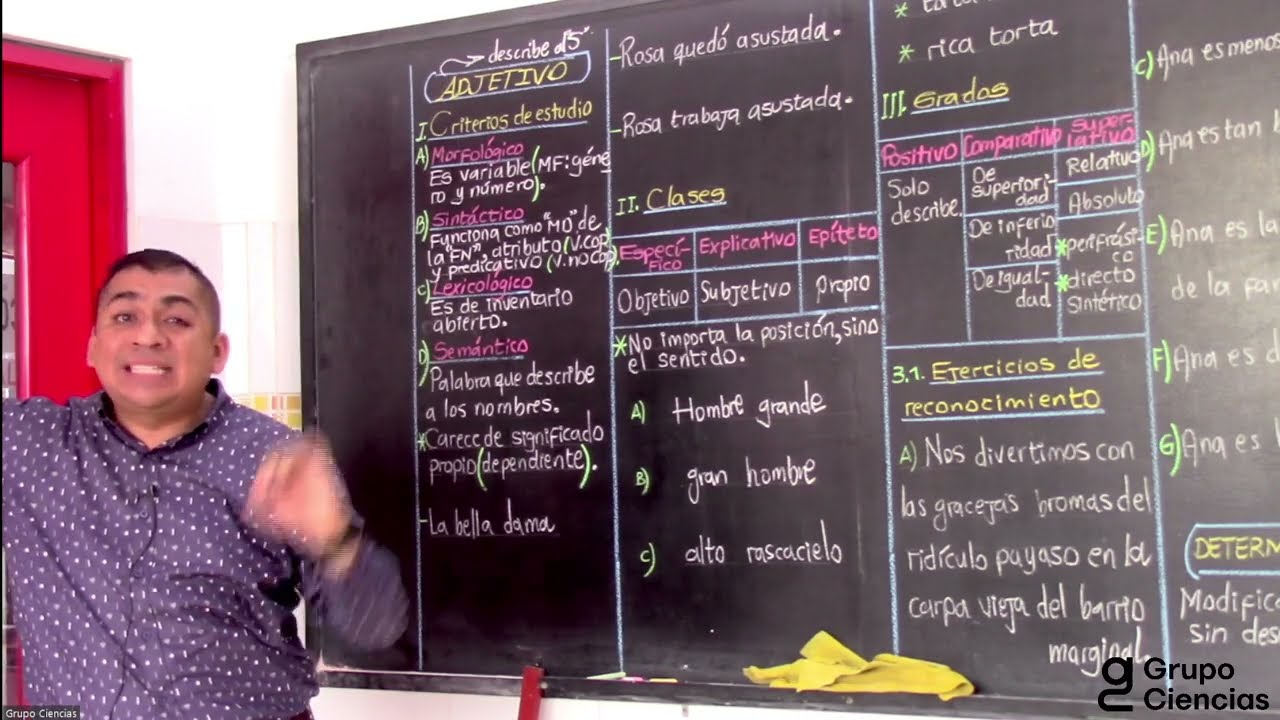 describe al "S"
ADJETIVO
I. Criterios de estudio
A) Morfológico
Es variable (MF: géne
ro y número).
B) Sintáctico
Funciona como "MD" de
la "FN", atributo (V.COP)
y predicativo (V.no COP).
C) Lexicológico
Es de inventario
abierto.
D) Semántico
Palabra que describe
a los nombres.
*Carece de significado
propio (dependiente).
-La bella dama
-Rosa quedó asustada.
-Rosa trabaja asustada.
II. Clases
Especí-
fico
Explicativo
Epíteto
Objetivo
Subjetivo
Propio
*No importa la posición, sino
el sentido.
A) Hombre grande
B) gran hombre
C) alto rascacielo
* rica torta
III. Grados
Positivo
Comparativo
Super-
lativo
Solo
describe.
De
superiori-
dad
De inferio
ridad
De igual-
dad
Relativo
Absoluto
*perifrási-
co
*directo
sintético
3.1. Ejercicios de
reconocimiento
A) Nos divertimos con
las gracejais bromas del
ridículo payaso en la
carpa vieja del barrio
marginal.
C) Ana es menos
D) Ana es tan
E) Ana es la
de la
F) Ana es
G) Ana es
DETERM
Modific
sin des
Grupo
Ciencias
Grupo Ciencias